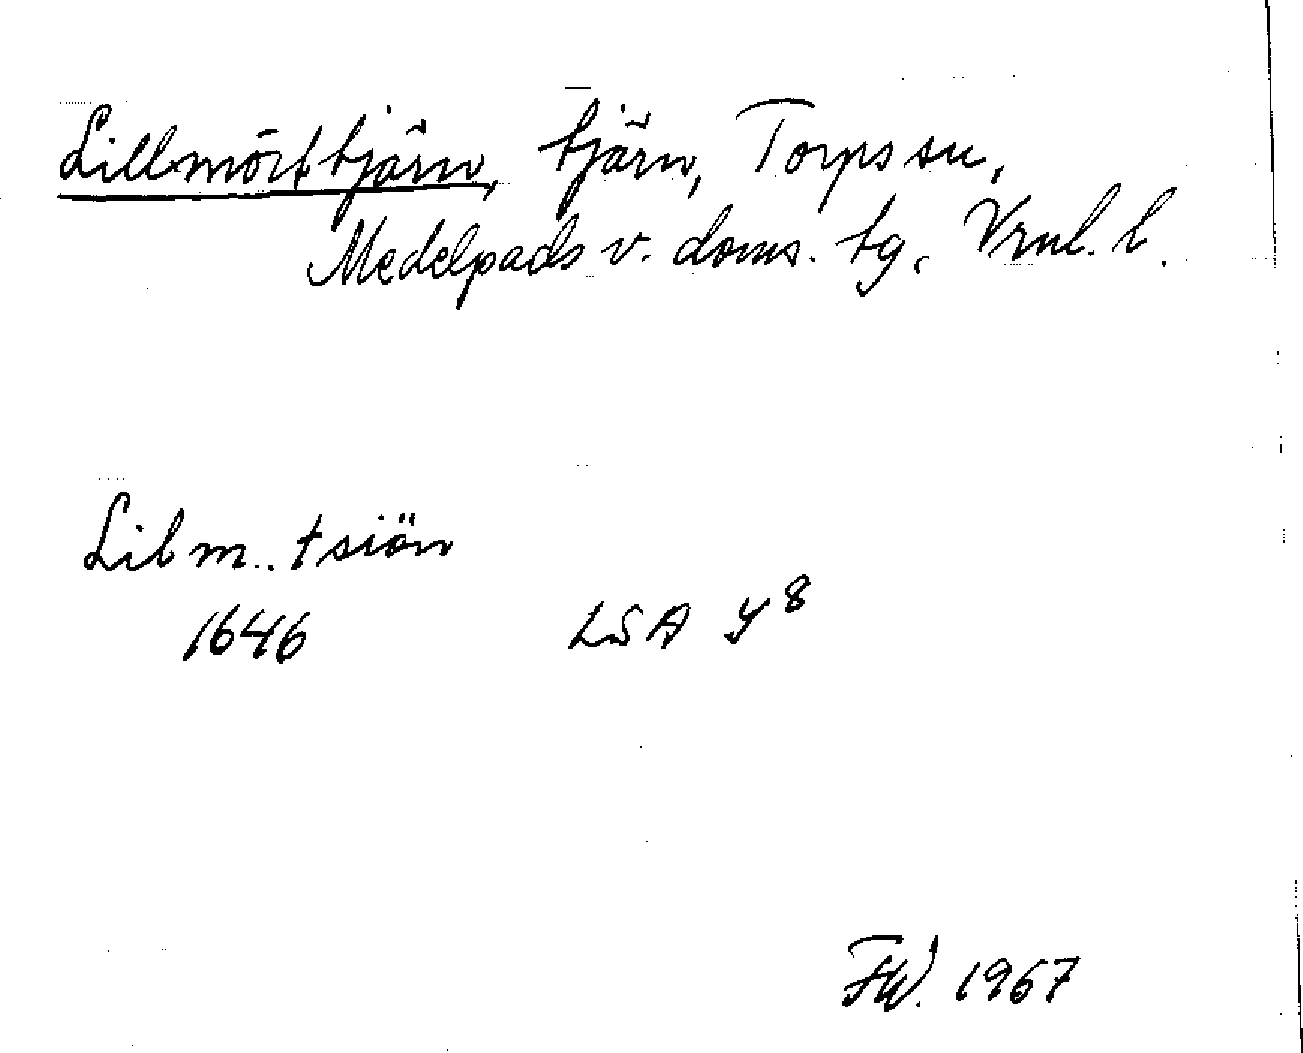 Lillmörttjärn, tjärn, Torps sn,
Medelpads v. doms. tg, Vrnl. l.
Lil m.. tsiön
1646 LSA Y8
FW. 1967